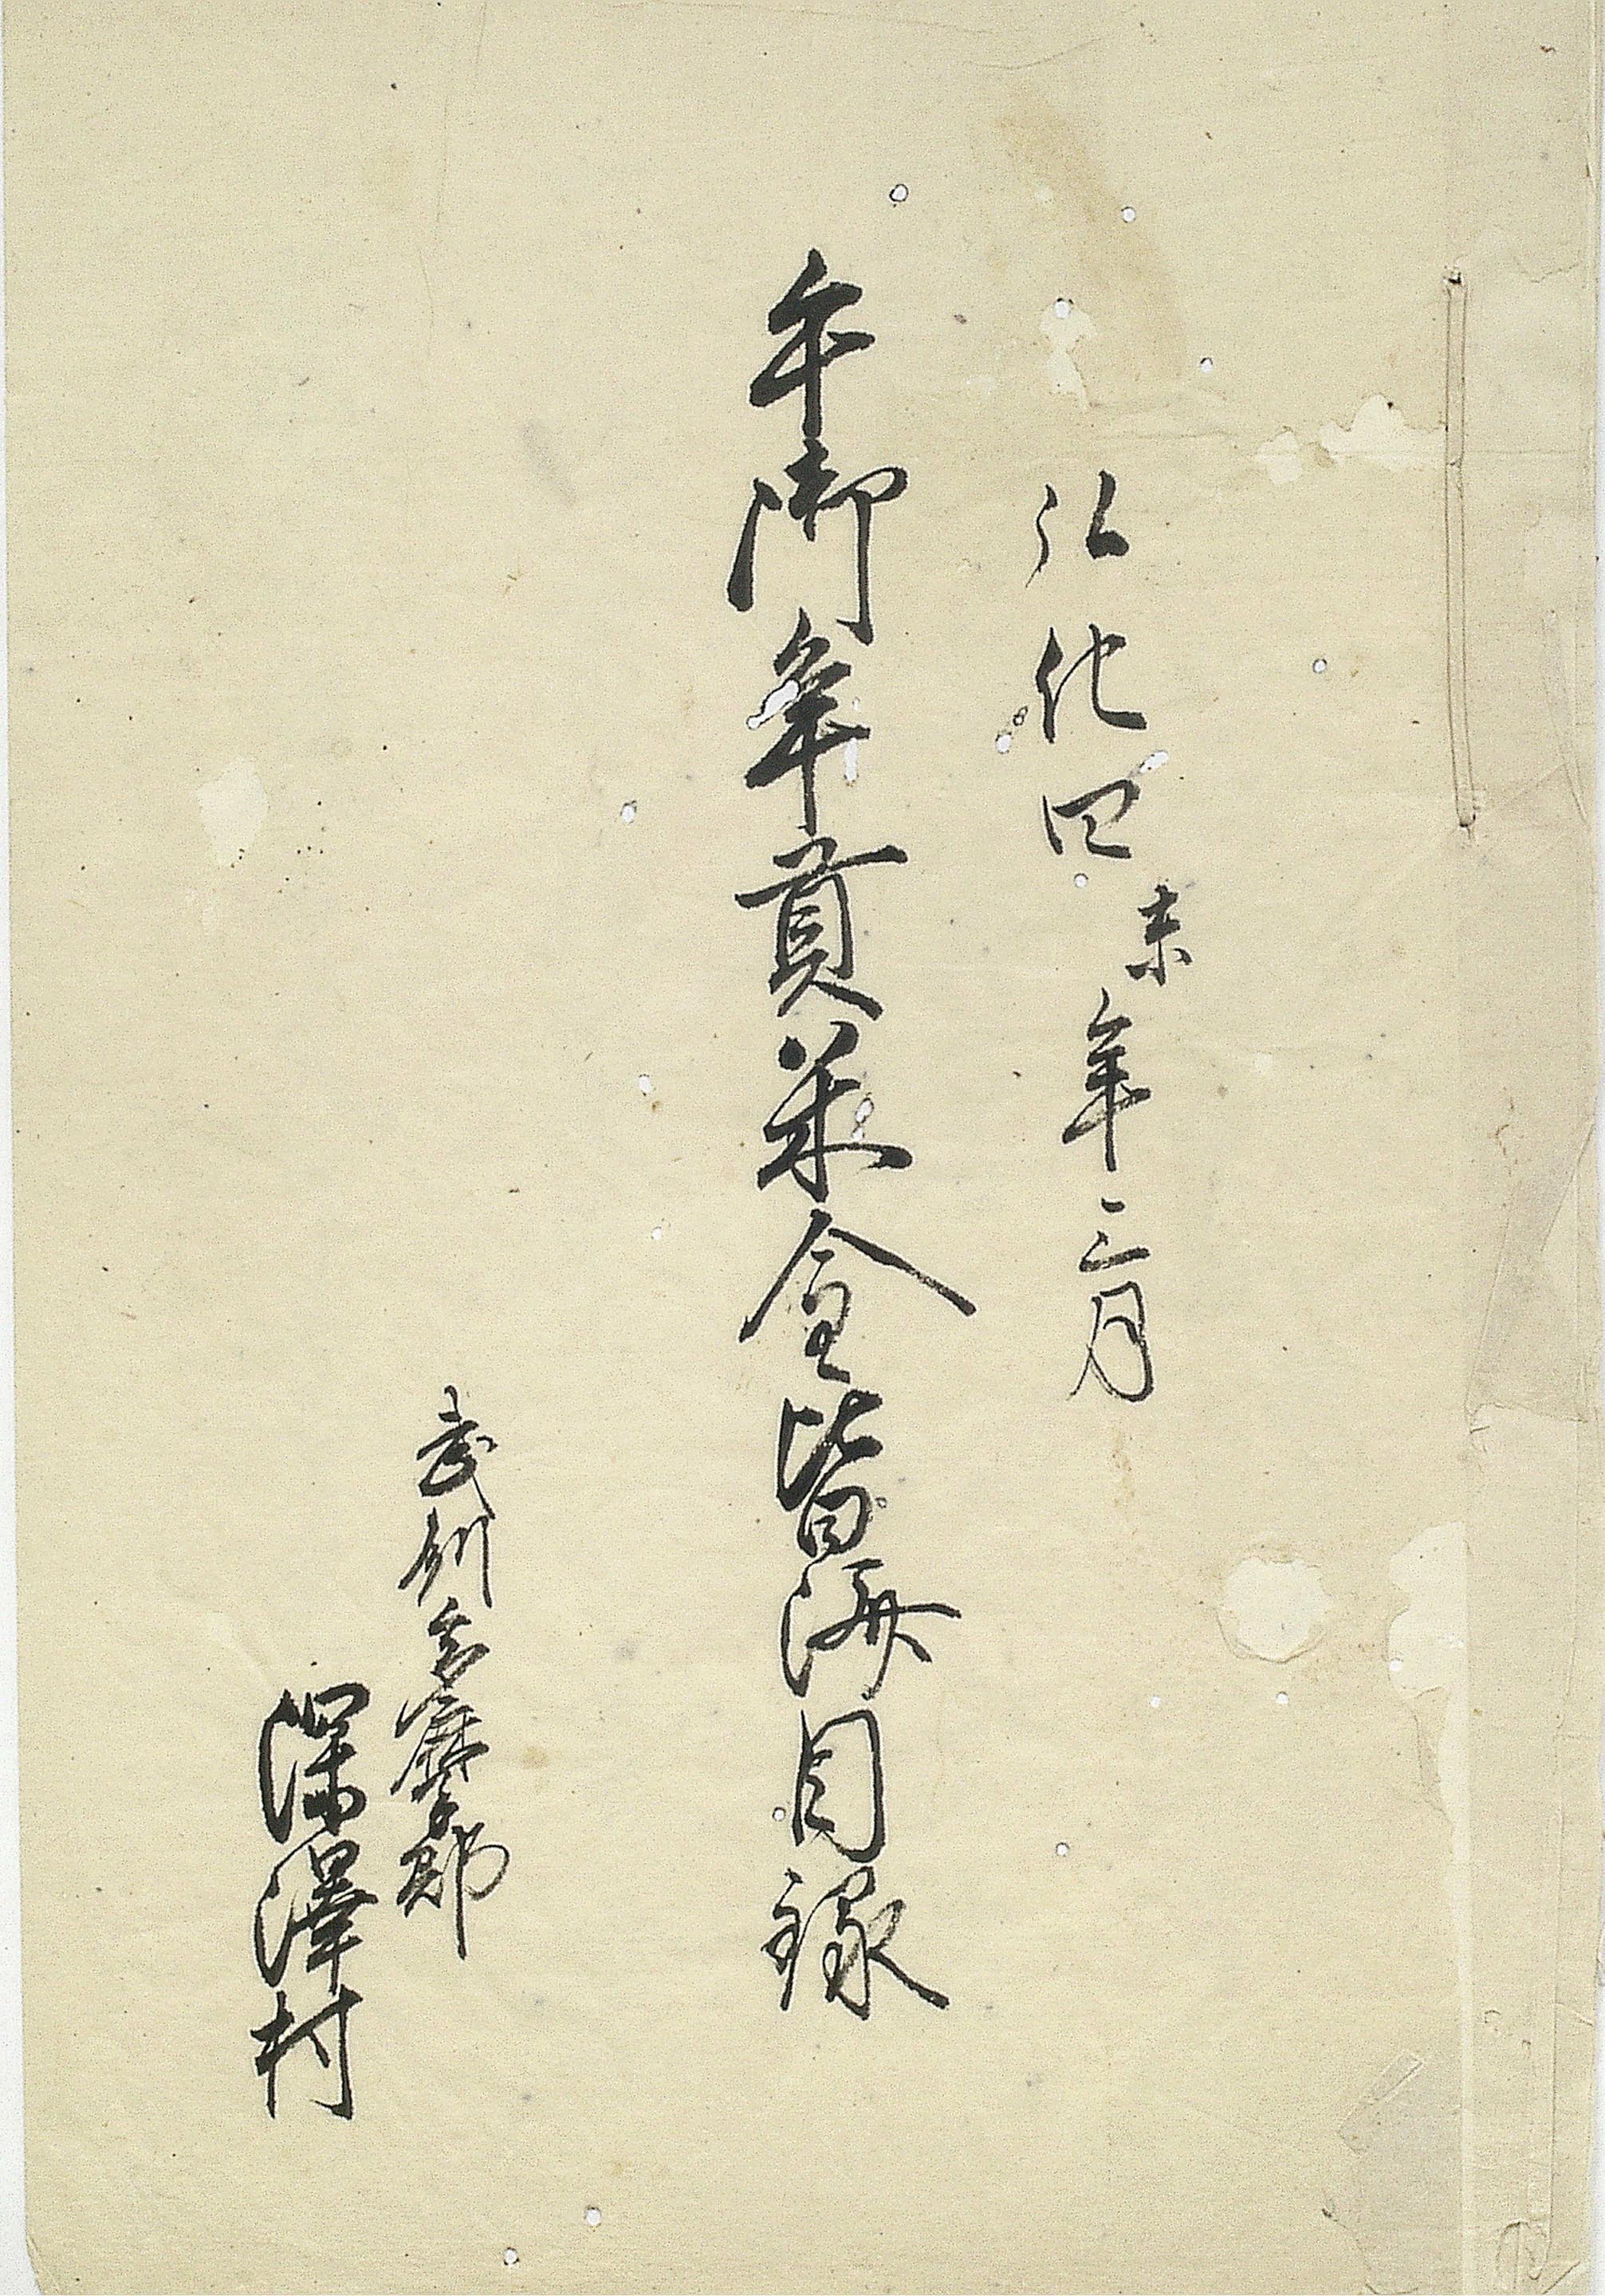 弘化四未年三月
午御年貢米金皆済目録
武州多摩郡
深澤村